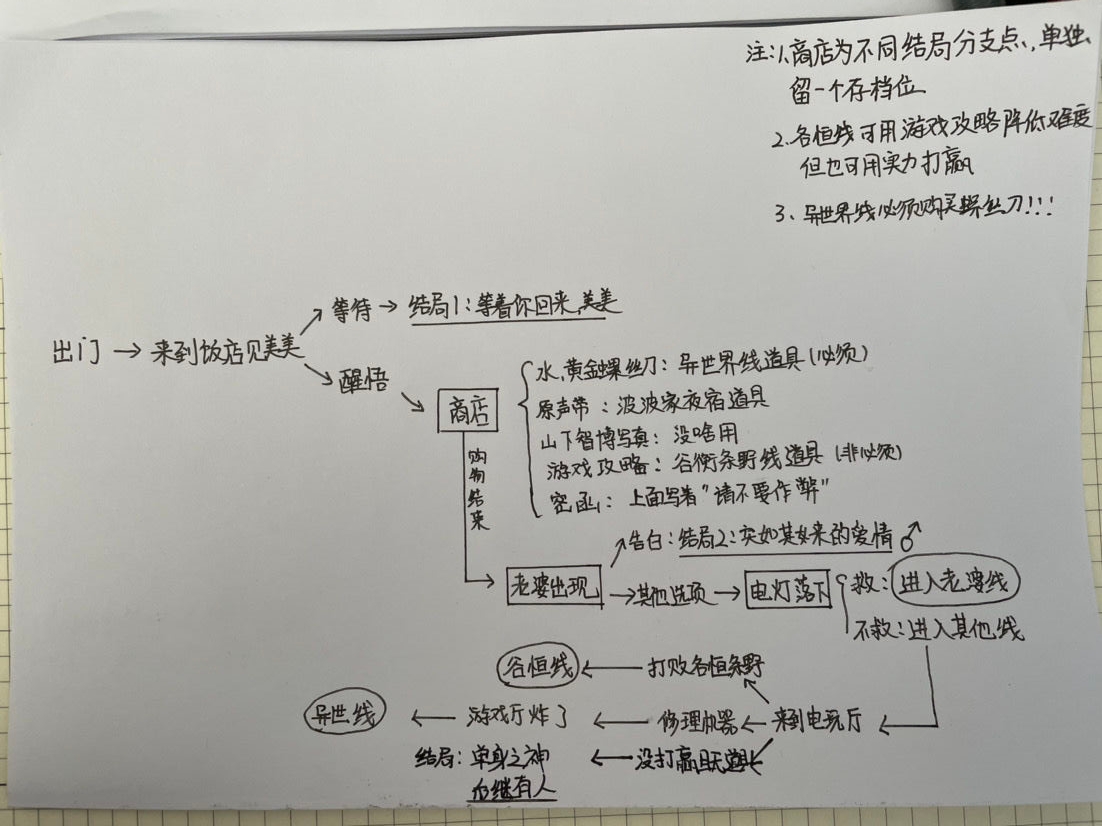 注:1、商店为不同结局分支点,单独
留一个存档位
2、各恒线可用游戏攻略降低难度
但也可用实力打赢
3、异世界线必须购买螺丝刀!!!
等待 → 结局1:等着你回来,美美
出门 → 来到饭店见美美
醒悟
商店
水,黄金螺丝刀:异世界线道具(必须)
原声带:波波家夜宿道具
山下智博写真:没啥用
游戏攻略:谷衡条野线道具(非必须)
密函:上面写着“请不要作弊”
购物结束
告白:结局2:突如其来的爱情♂
老婆出现 → 其他选项 → 电灯落下
救:进入老婆线
不救:进入其他线
谷恒线 ← 打败谷恒条野
异世线 ← 游戏厅炸了 ← 修理机器 ← 来到电玩厅
结局:单身之神 ← 没打赢且无道具
后继有人